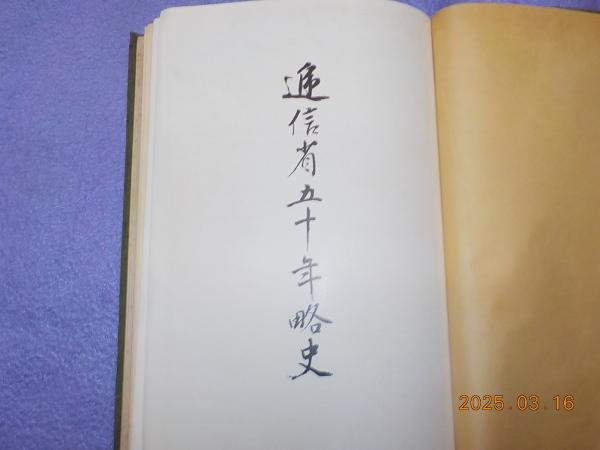 遞信省五十年略史
2025.03.16